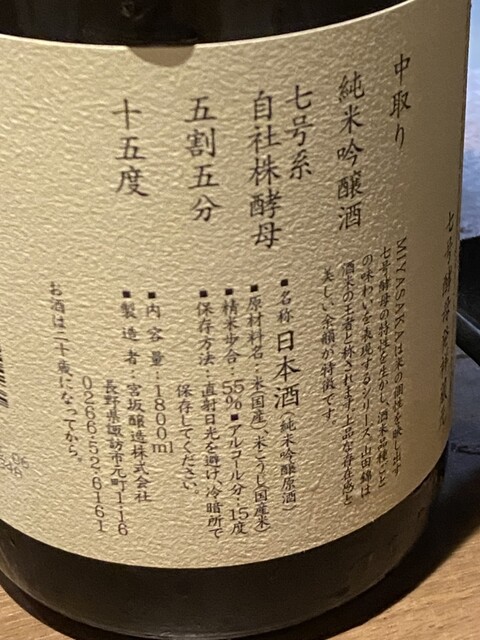 七号酵母
中取り
純米吟醸酒
七号系
自社株酵母
五割五分
十五度
MIYASAKAは米の個性を映し出す
七号酵母の特性を生かし、酒米品種ごと
の味わいを表現するシリーズ。山田錦は
酒米の王者と称されます。上品な存在感と
美しい余韻が特徴です。
■名称 日本酒(純米吟醸原酒)
■原材料名:米(国産)、米こうじ(国産米)
■精米歩合:55%■アルコール分:15度
■保存方法:直射日光を避け、冷暗所で
保存してください。
■内容量:1800ml
■製造者:宮坂醸造株式会社
長野県諏訪市元町1-16
0266-52-6161
お酒は二十歳になってから。